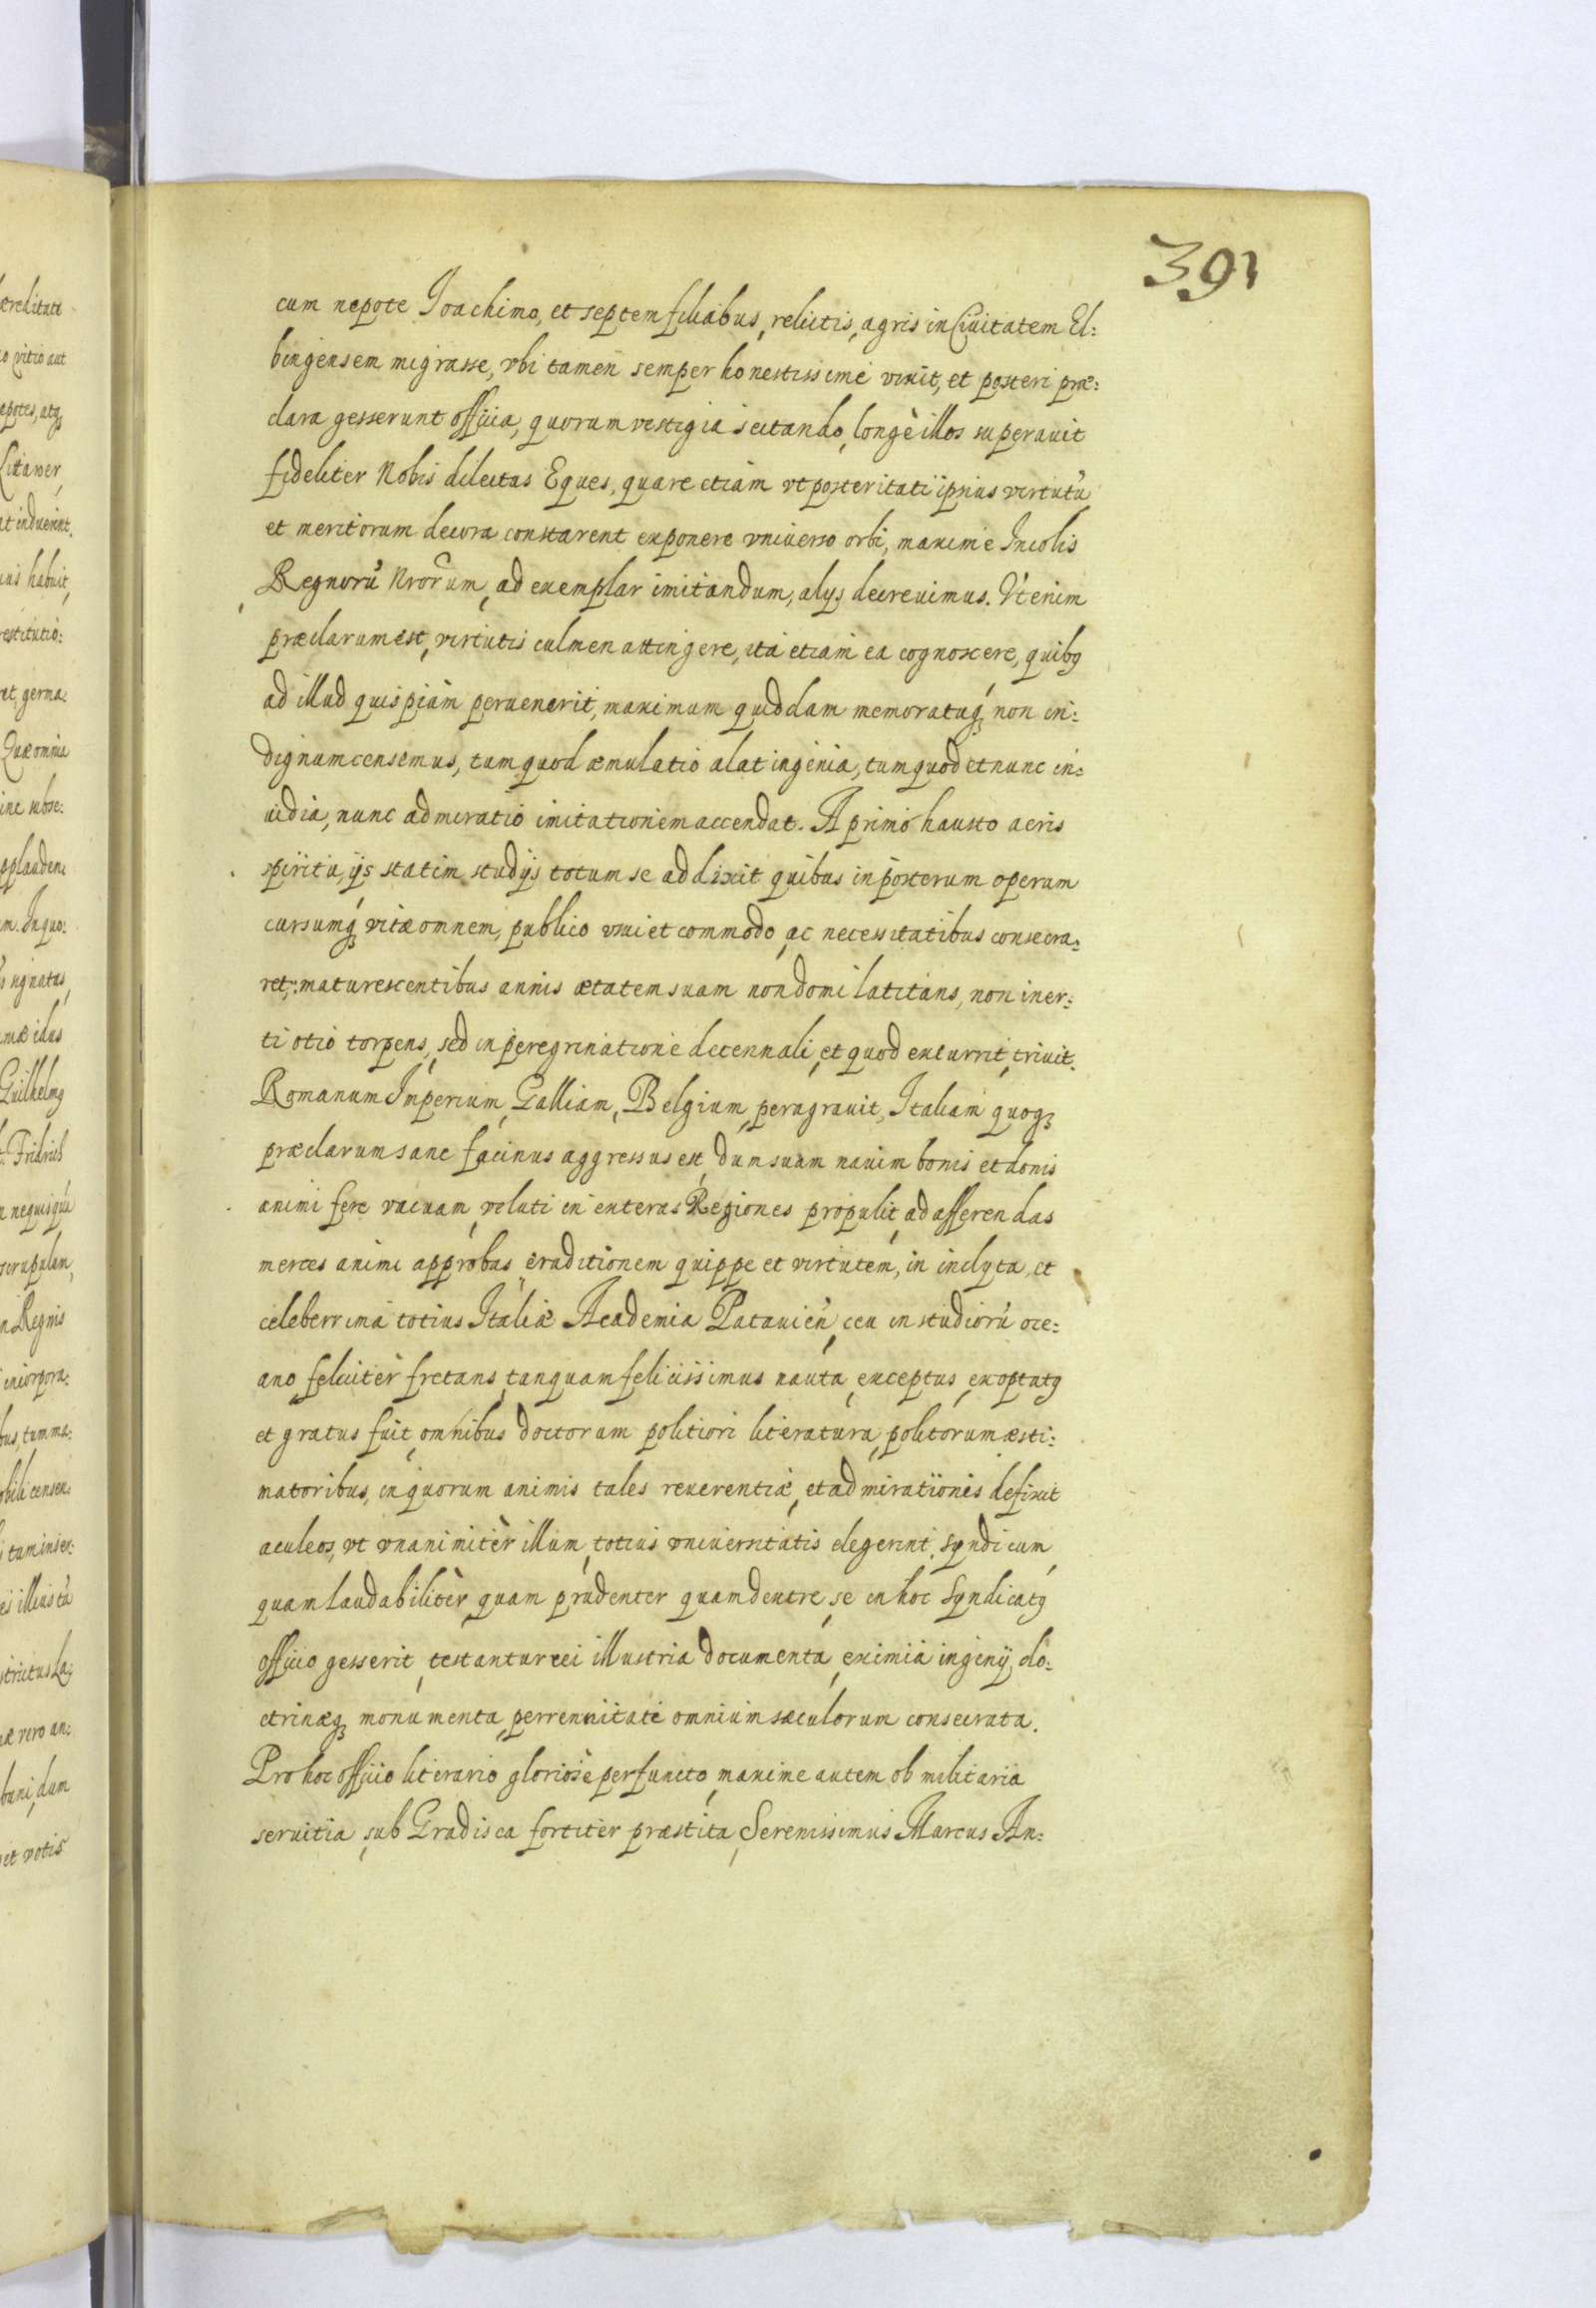 391
cum nepote Joachimo, et septem filiabus, relictis, agris in Ciuitatem El:
bingensem migrasse, vbi tamen semper honestissimè vixit, et posteri præ:
clara gesserunt officia, quorum vestigia sectando, longè illos superauit
fideliter Nobis dilectus Eques, quare etiam vt posteritati ipsius virtutũ
et meritorum decora constarent exponere vniuerso orbi, maxime Incolis
Regnorũ Nrorum, ad exemplar imitandum, alys decreuimus. Vt enim
præclarum est, virtutis culmen attingere, ita etiam ea cognoscere, quibꝰ
ad illud quispiam peruenerit, maximum quiddam memoratuqꝫ non in:
dignum censemus, tum quod æmulatio alat ingenia, tum quod et nunc in:
uidia, nunc admiratio imitationem accendat. A primo hausto aeris
spiritu, ijs statim studijs totum se addixit quibus in posterum operam
cursumqꝫ vitæ omnem, publico vsui et commodo, ac necessitatibus consecra:
ret: maturescentibus annis ætatem suam non domi latitans, non iner:
ti otio torpens, sed in peregrinatione decennali, et quod excurrit, triuit.
Romanum Imperium, Galliam, Belgium, peragrauit, Italiam quoqꝫ
præclarum sane facinus aggressus est, dum suam nauim bonis et donis
animi fere vacuam, veluti in exteras Regiones propulit, ad afferendas
merces animi approbas, eruditionem quippe et virtutem, in inclyta, et
celeberrima totius Italiæ Academia Patauien̄, ceu in studiorũ oce:
ano, feliciter fretans, tanquam felicissimus nauta, exceptus, exoptatꝰ
et gratus fuit, omnibus doctorum politiori literatura, politorum æsti:
matoribus, in quorum animis tales reuerentiæ, et admirationis defixit
aculeos, vt vnanimitèr illum, totius vniuersitatis elegerint Syndicum,
quam laudabilitèr, quam prudenter quam dextre, se in hoc Syndicatꝰ
officio gesserit, testantur rei illustria documenta, eximia ingenij, do:
ctrinæqꝫ monumenta, perrennitati omnium sæculorum consecrata.
Pro hoc officio literario gloriosè perfuncto, maxime autem ob militaria
seruitia, sub Gradisca fortitèr præstita, Serenissimus Marcus An: